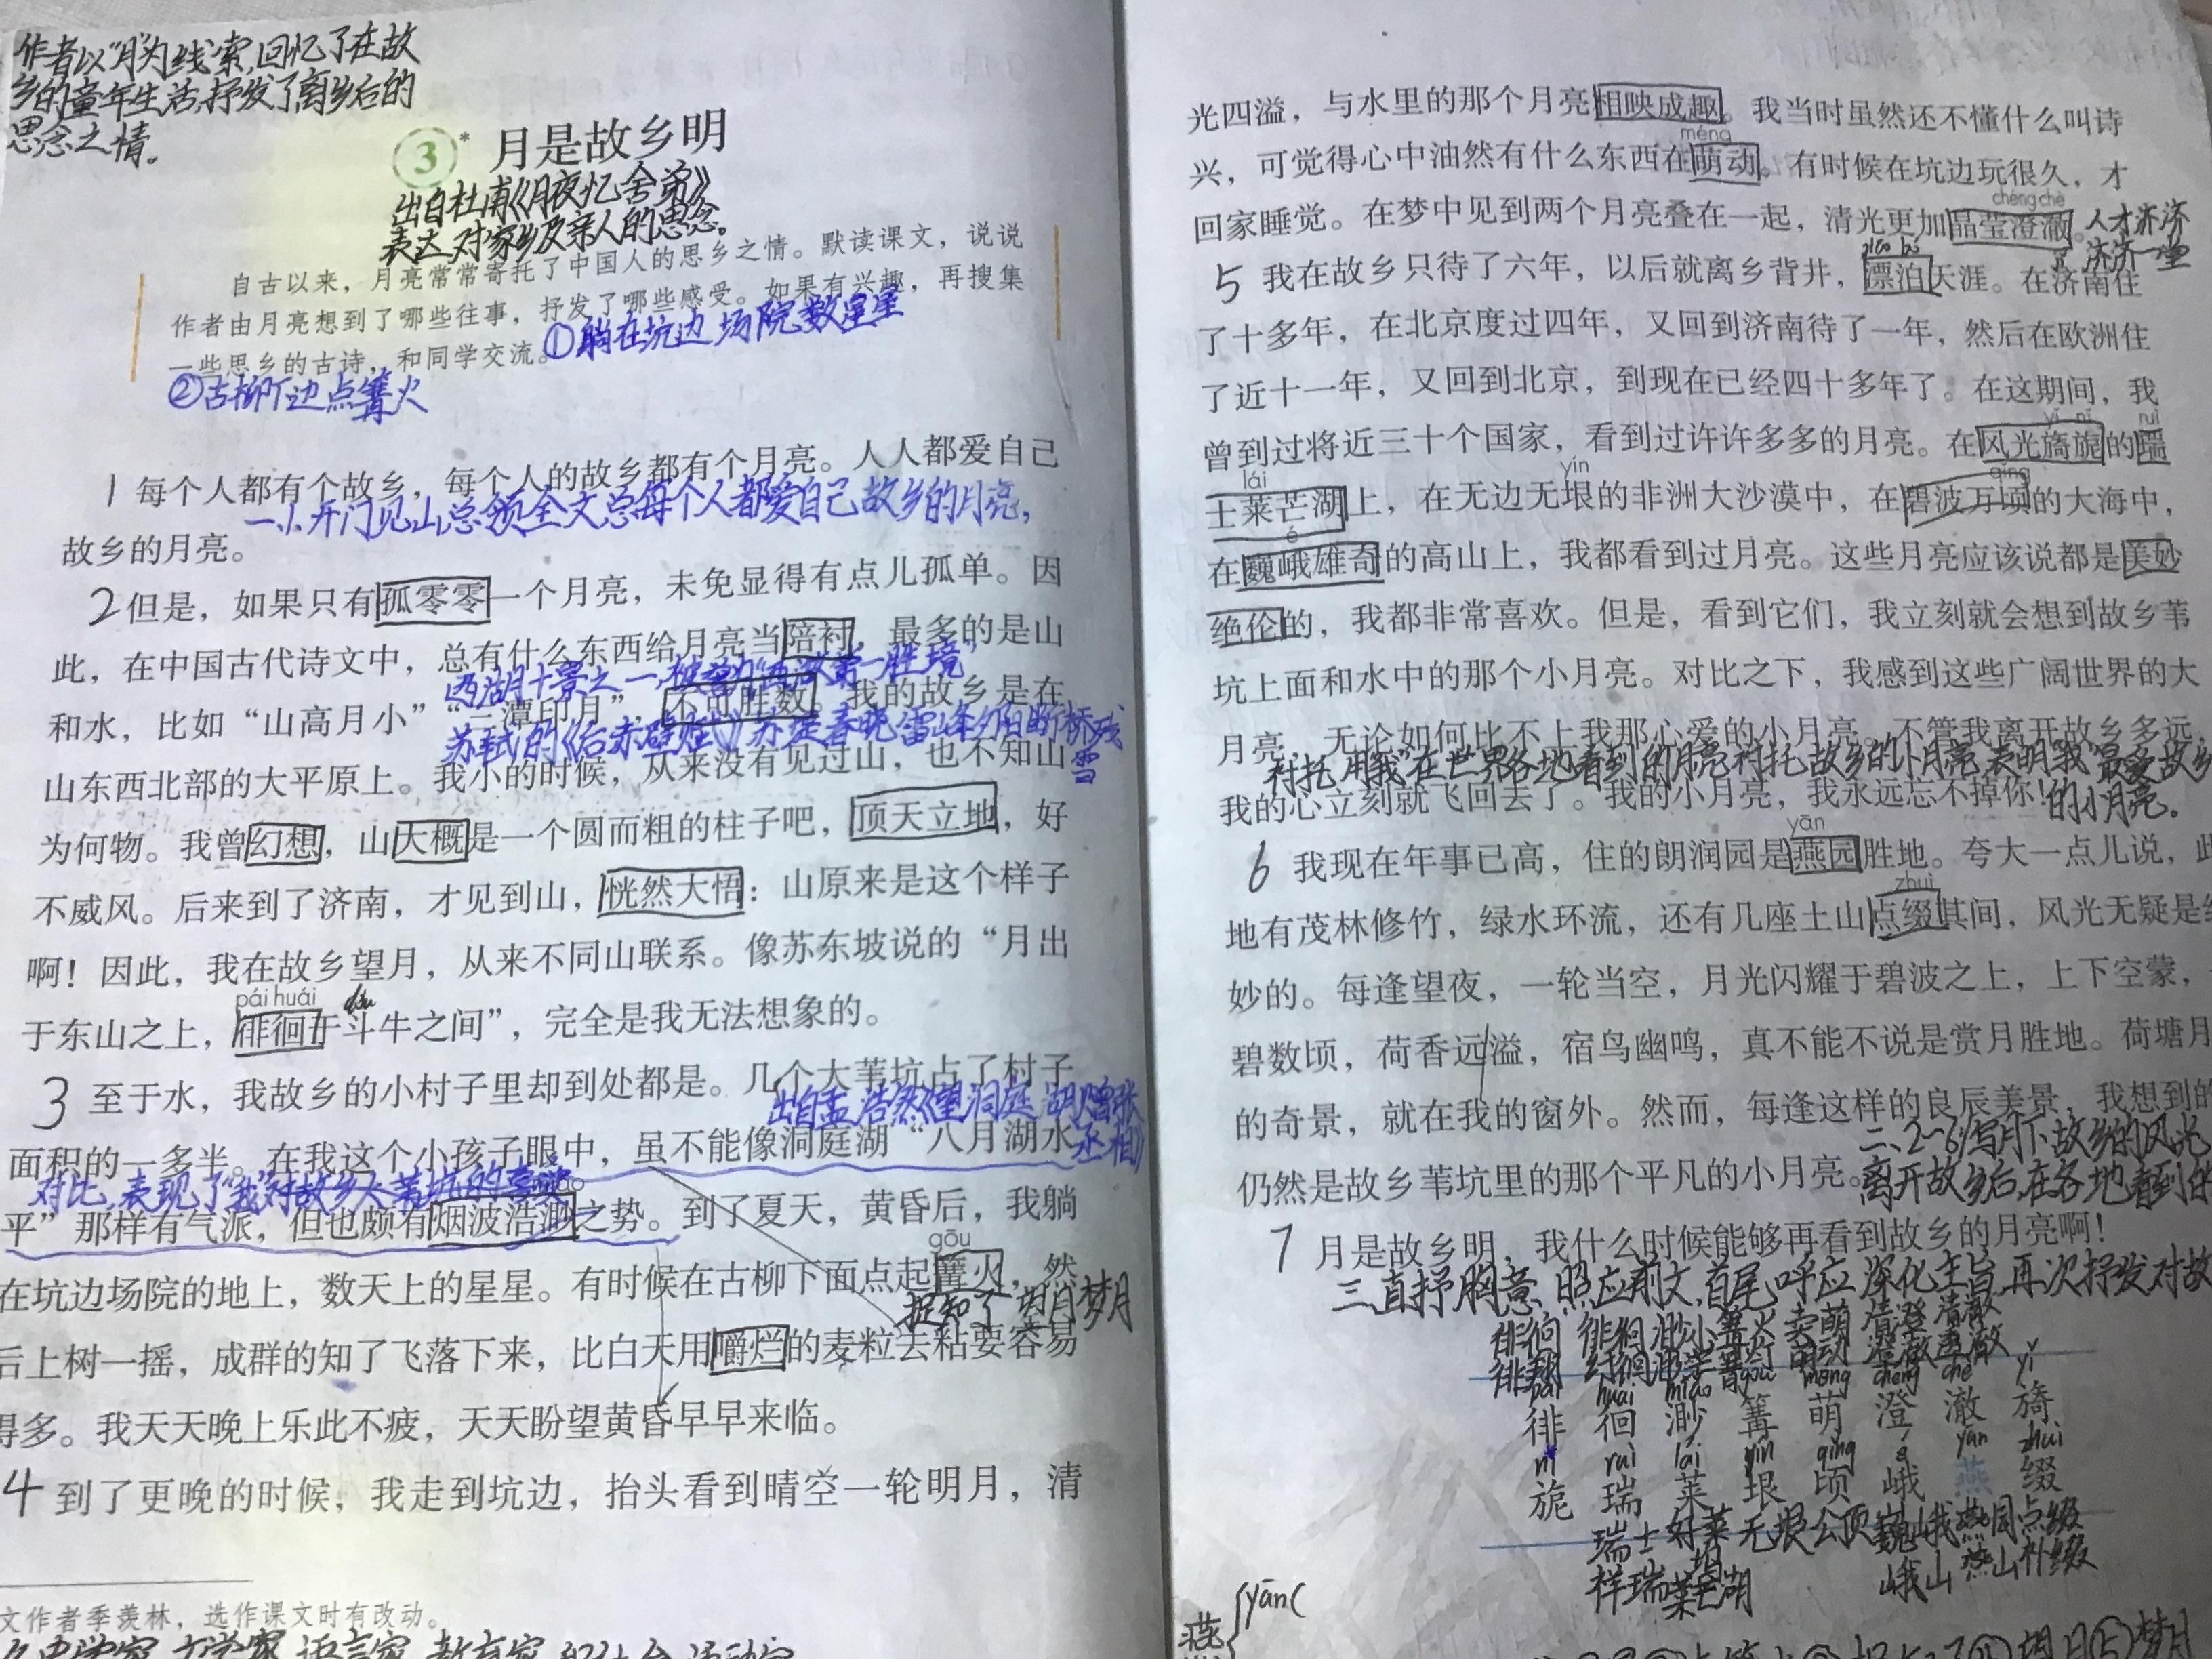 作者以"月"为线索,回忆了在故
乡的童年生活,抒发了离乡后的
思念之情。
3* 月是故乡明
出自杜甫《月夜忆舍弟》
表达对家乡及亲人的思念。
自古以来，月亮常常寄托了中国人的思乡之情。默读课文，说说
作者由月亮想到了哪些往事，抒发了哪些感受。如果有兴趣，再搜集
一些思乡的古诗，和同学交流。
①躺在坑边场院数星星
②古柳下边点篝火
1 每个人都有个故乡，每个人的故乡都有个月亮。人人都爱自己
一、1.开门见山,总领全文总每个人都爱自己故乡的月亮,
故乡的月亮。
2 但是，如果只有孤零零一个月亮，未免显得有点儿孤单。因
此，在中国古代诗文中，总有什么东西给月亮当陪衬，最多的是山
西湖十景之一,被誉为"西湖第一胜境"
和水，比如“山高月小”“三潭印月”，不可胜数。我的故乡是在
苏轼的《后赤壁赋》苏堤春晓 雷峰夕阳 断桥残
雪
山东西北部的大平原上。我小的时候，从来没有见过山，也不知山
为何物。我曾幻想，山大概是一个圆而粗的柱子吧，顶天立地，好
不威风。后来到了济南，才见到山，恍然大悟：山原来是这个样子
啊！因此，我在故乡望月，从来不同山联系。像苏东坡说的“月出
pái huái dǒu
于东山之上，徘徊于斗牛之间”，完全是我无法想象的。
3 至于水，我故乡的小村子里却到处都是。几个大苇坑占了村子
出自孟浩然《望洞庭湖赠张
丞相》
面积的一多半。在我这个小孩子眼中，虽不能像洞庭湖“八月湖水
对比,表现了"我"对故乡大苇坑的喜爱
平”那样有气派，但也颇有烟波浩渺之势。到了夏天，黄昏后，我躺
gōu
在坑边场院的地上，数天上的星星。有时候在古柳下面点起篝火，然
捉知了 梦月
后上树一摇，成群的知了飞落下来，比白天用嚼烂的麦粒去粘要容易
得多。我天天晚上乐此不疲，天天盼望黄昏早早来临。
4 到了更晚的时候，我走到坑边，抬头看到晴空一轮明月，清
文作者季羡林，选作课文时有改动。
文学家 语言家 教育家
光四溢，与水里的那个月亮相映成趣。我当时虽然还不懂什么叫诗
méng
兴，可觉得心中油然有什么东西在萌动。有时候在坑边玩很久，才
chéng chè
回家睡觉。在梦中见到两个月亮叠在一起，清光更加晶莹澄澈。
人才济济
济济一堂
piāo bó
5 我在故乡只待了六年，以后就离乡背井，漂泊天涯。在济南住
了十多年，在北京度过四年，又回到济南待了一年，然后在欧洲住
了近十一年，又回到北京，到现在已经四十多年了。在这期间，我
yǐ nǐ ruì
曾到过将近三十个国家，看到过许许多多的月亮。在风光旖旎的瑞
lái yín qǐng
士莱芒湖上，在无边无垠的非洲大沙漠中，在碧波万顷的大海中，
é
在巍峨雄奇的高山上，我都看到过月亮。这些月亮应该说都是美妙
绝伦的，我都非常喜欢。但是，看到它们，我立刻就会想到故乡苇
坑上面和水中的那个小月亮。对比之下，我感到这些广阔世界的大
月亮，无论如何比不上我那心爱的小月亮。不管我离开故乡多远，
衬托 用"我"在世界各地看到的月亮衬托故乡的小月亮,表明"我"最爱故乡
的小月亮。
我的心立刻就飞回去了。我的小月亮，我永远忘不掉你！
yān
6 我现在年事已高，住的朗润园是燕园胜地。夸大一点儿说，此
zhuì
地有茂林修竹，绿水环流，还有几座土山点缀其间，风光无疑是绝
妙的。每逢望夜，一轮当空，月光闪耀于碧波之上，上下空蒙，
碧数顷，荷香远溢，宿鸟幽鸣，真不能不说是赏月胜地。荷塘月
的奇景，就在我的窗外。然而，每逢这样的良辰美景，我想到的
二、2~6:写月下故乡的风光
仍然是故乡苇坑里的那个平凡的小月亮。
离开故乡后,在各地看到的
7 月是故乡明，我什么时候能够再看到故乡的月亮啊！
三、直抒胸意,照应前文,首尾呼应,深化主旨,再次抒发对故
徘徊 徘徊 渺小 篝火 卖萌 清澄 清澈
萌动
pái huái miǎo gōu méng chéng chè yǐ
徘 徊 渺 篝 萌 澄 澈 旖
nǐ ruì lái yín qǐng é yān zhuì
旎 瑞 莱 垠 顷 峨 燕 缀
瑞士 好莱坞 无垠 公顷 巍峨 燕园 点缀
祥瑞 莱芒湖 峨山 燕山 补缀
燕 yān(